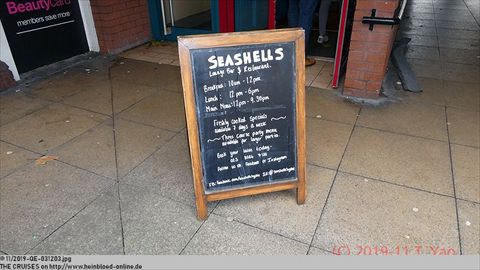 BeautyCard
members save more
SEASHELLS
Lounge Bar & Restaurant
Breakfast: 10am - 12pm
Lunch : 12pm - 6pm
Main Menu: 12pm - 9.30pm
Freshly Cooked Specials
available 7 days a week
Three Course party menu
available for larger parties.
Book your table today.
Follow us on Facebook & Instagram
©11/2019-QE-031203.jpg
THE CRUISES on http://www.heinbloed-online.de
(C) 2019-11 T. Yao